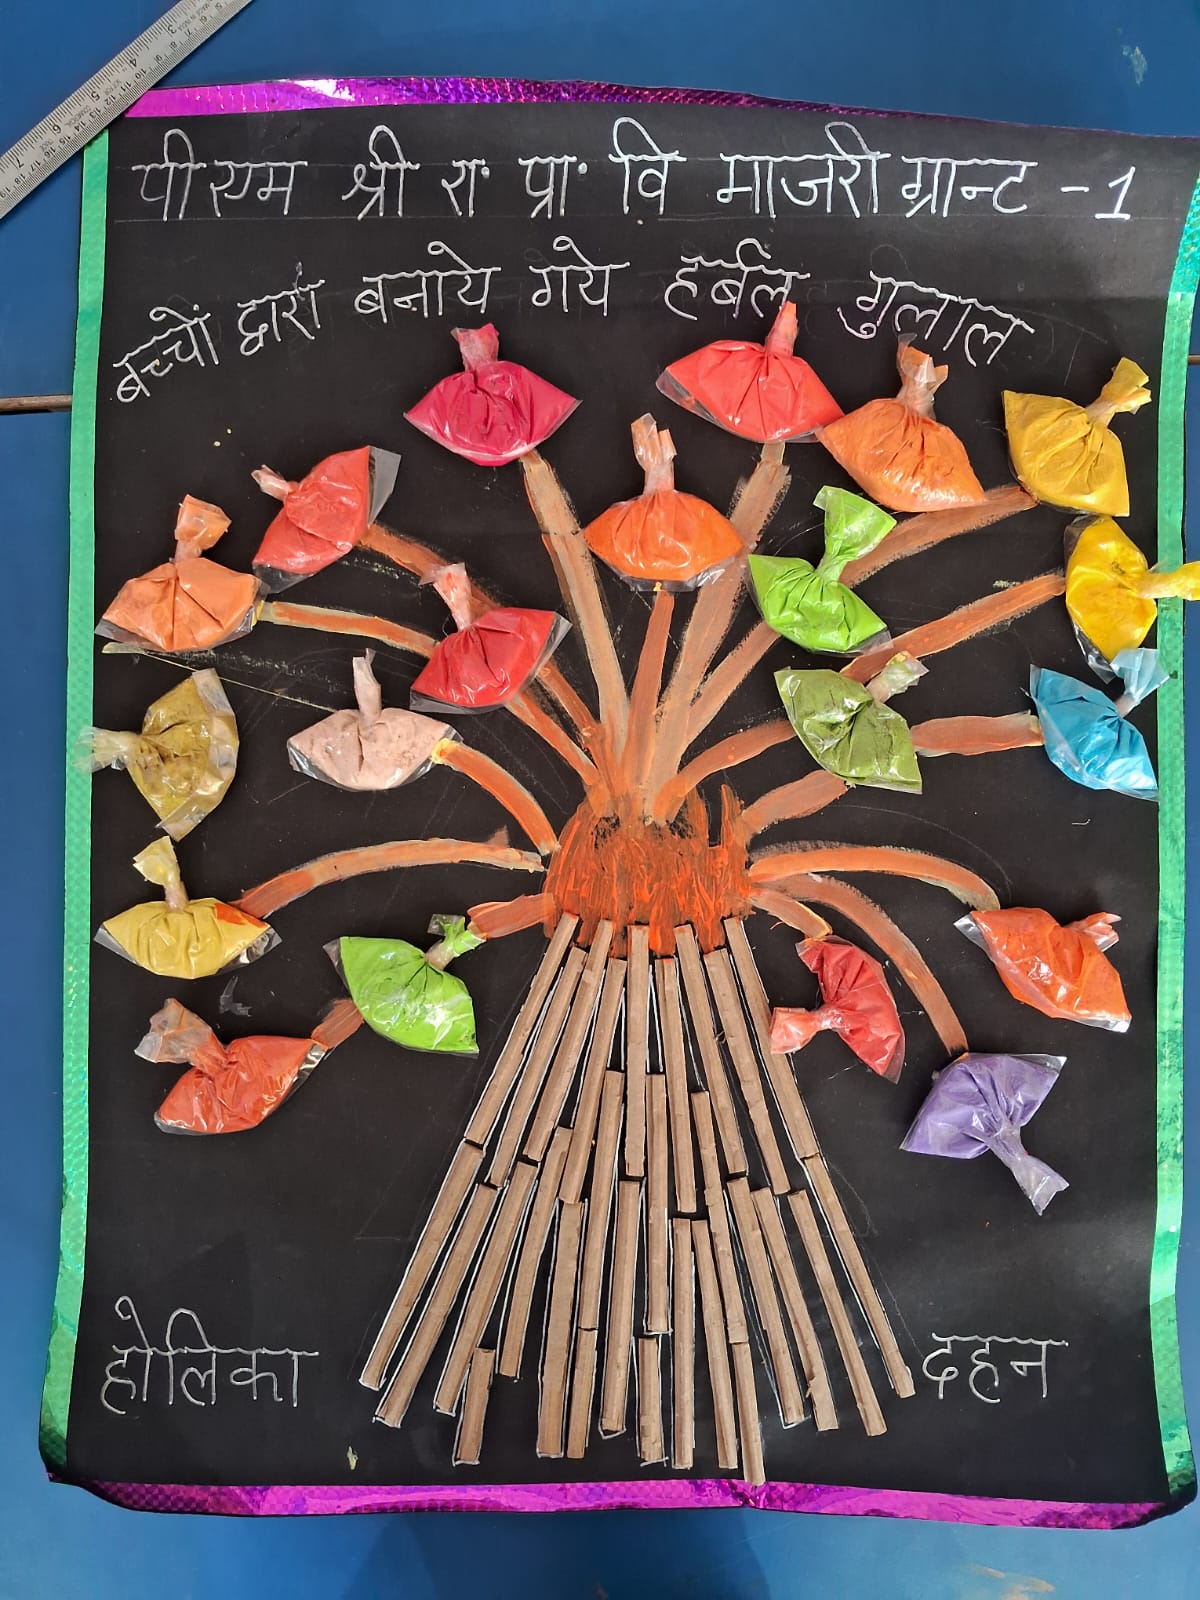 पीएम श्री रा॰ प्रा॰ वि माजरी ग्रान्ट -1
बच्चों द्वारा बनाये गये हर्बल गुलाल
होलिका दहन